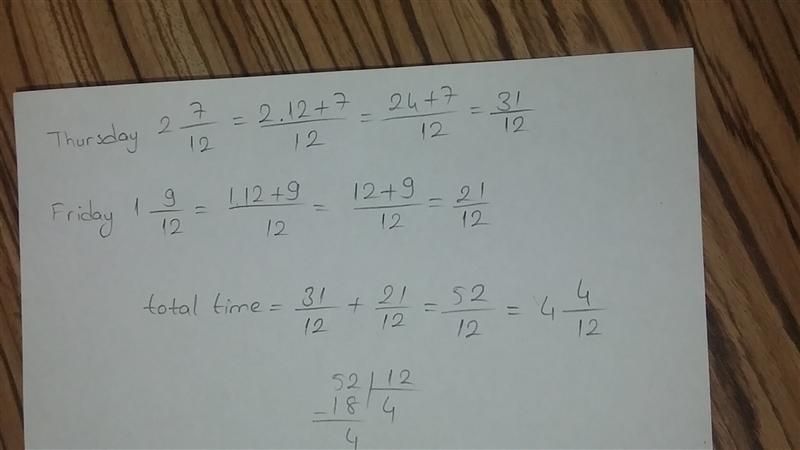 Thursday 2 7/12 = 2.12+7/12 = 24+7/12 = 31/12
Friday 1 9/12 = 1.12+9/12 = 12+9/12 = 21/12
total time = 31/12 + 21/12 = 52/12 = 4 4/12
52 | 12
-18 4
4